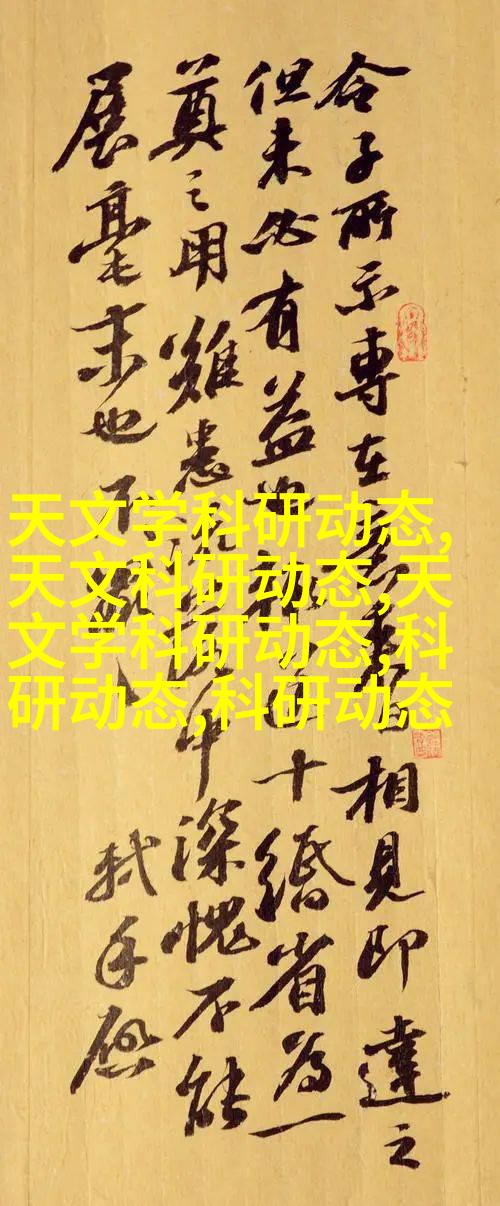 令子所示專在相見即達之
但未必有益十緡省為一
奠之用雖患中深愧不能
展毫末也不
軾手啟
天文学科研动态,
天文科研动态,天
文学科研动态,科
研动态,科研动态